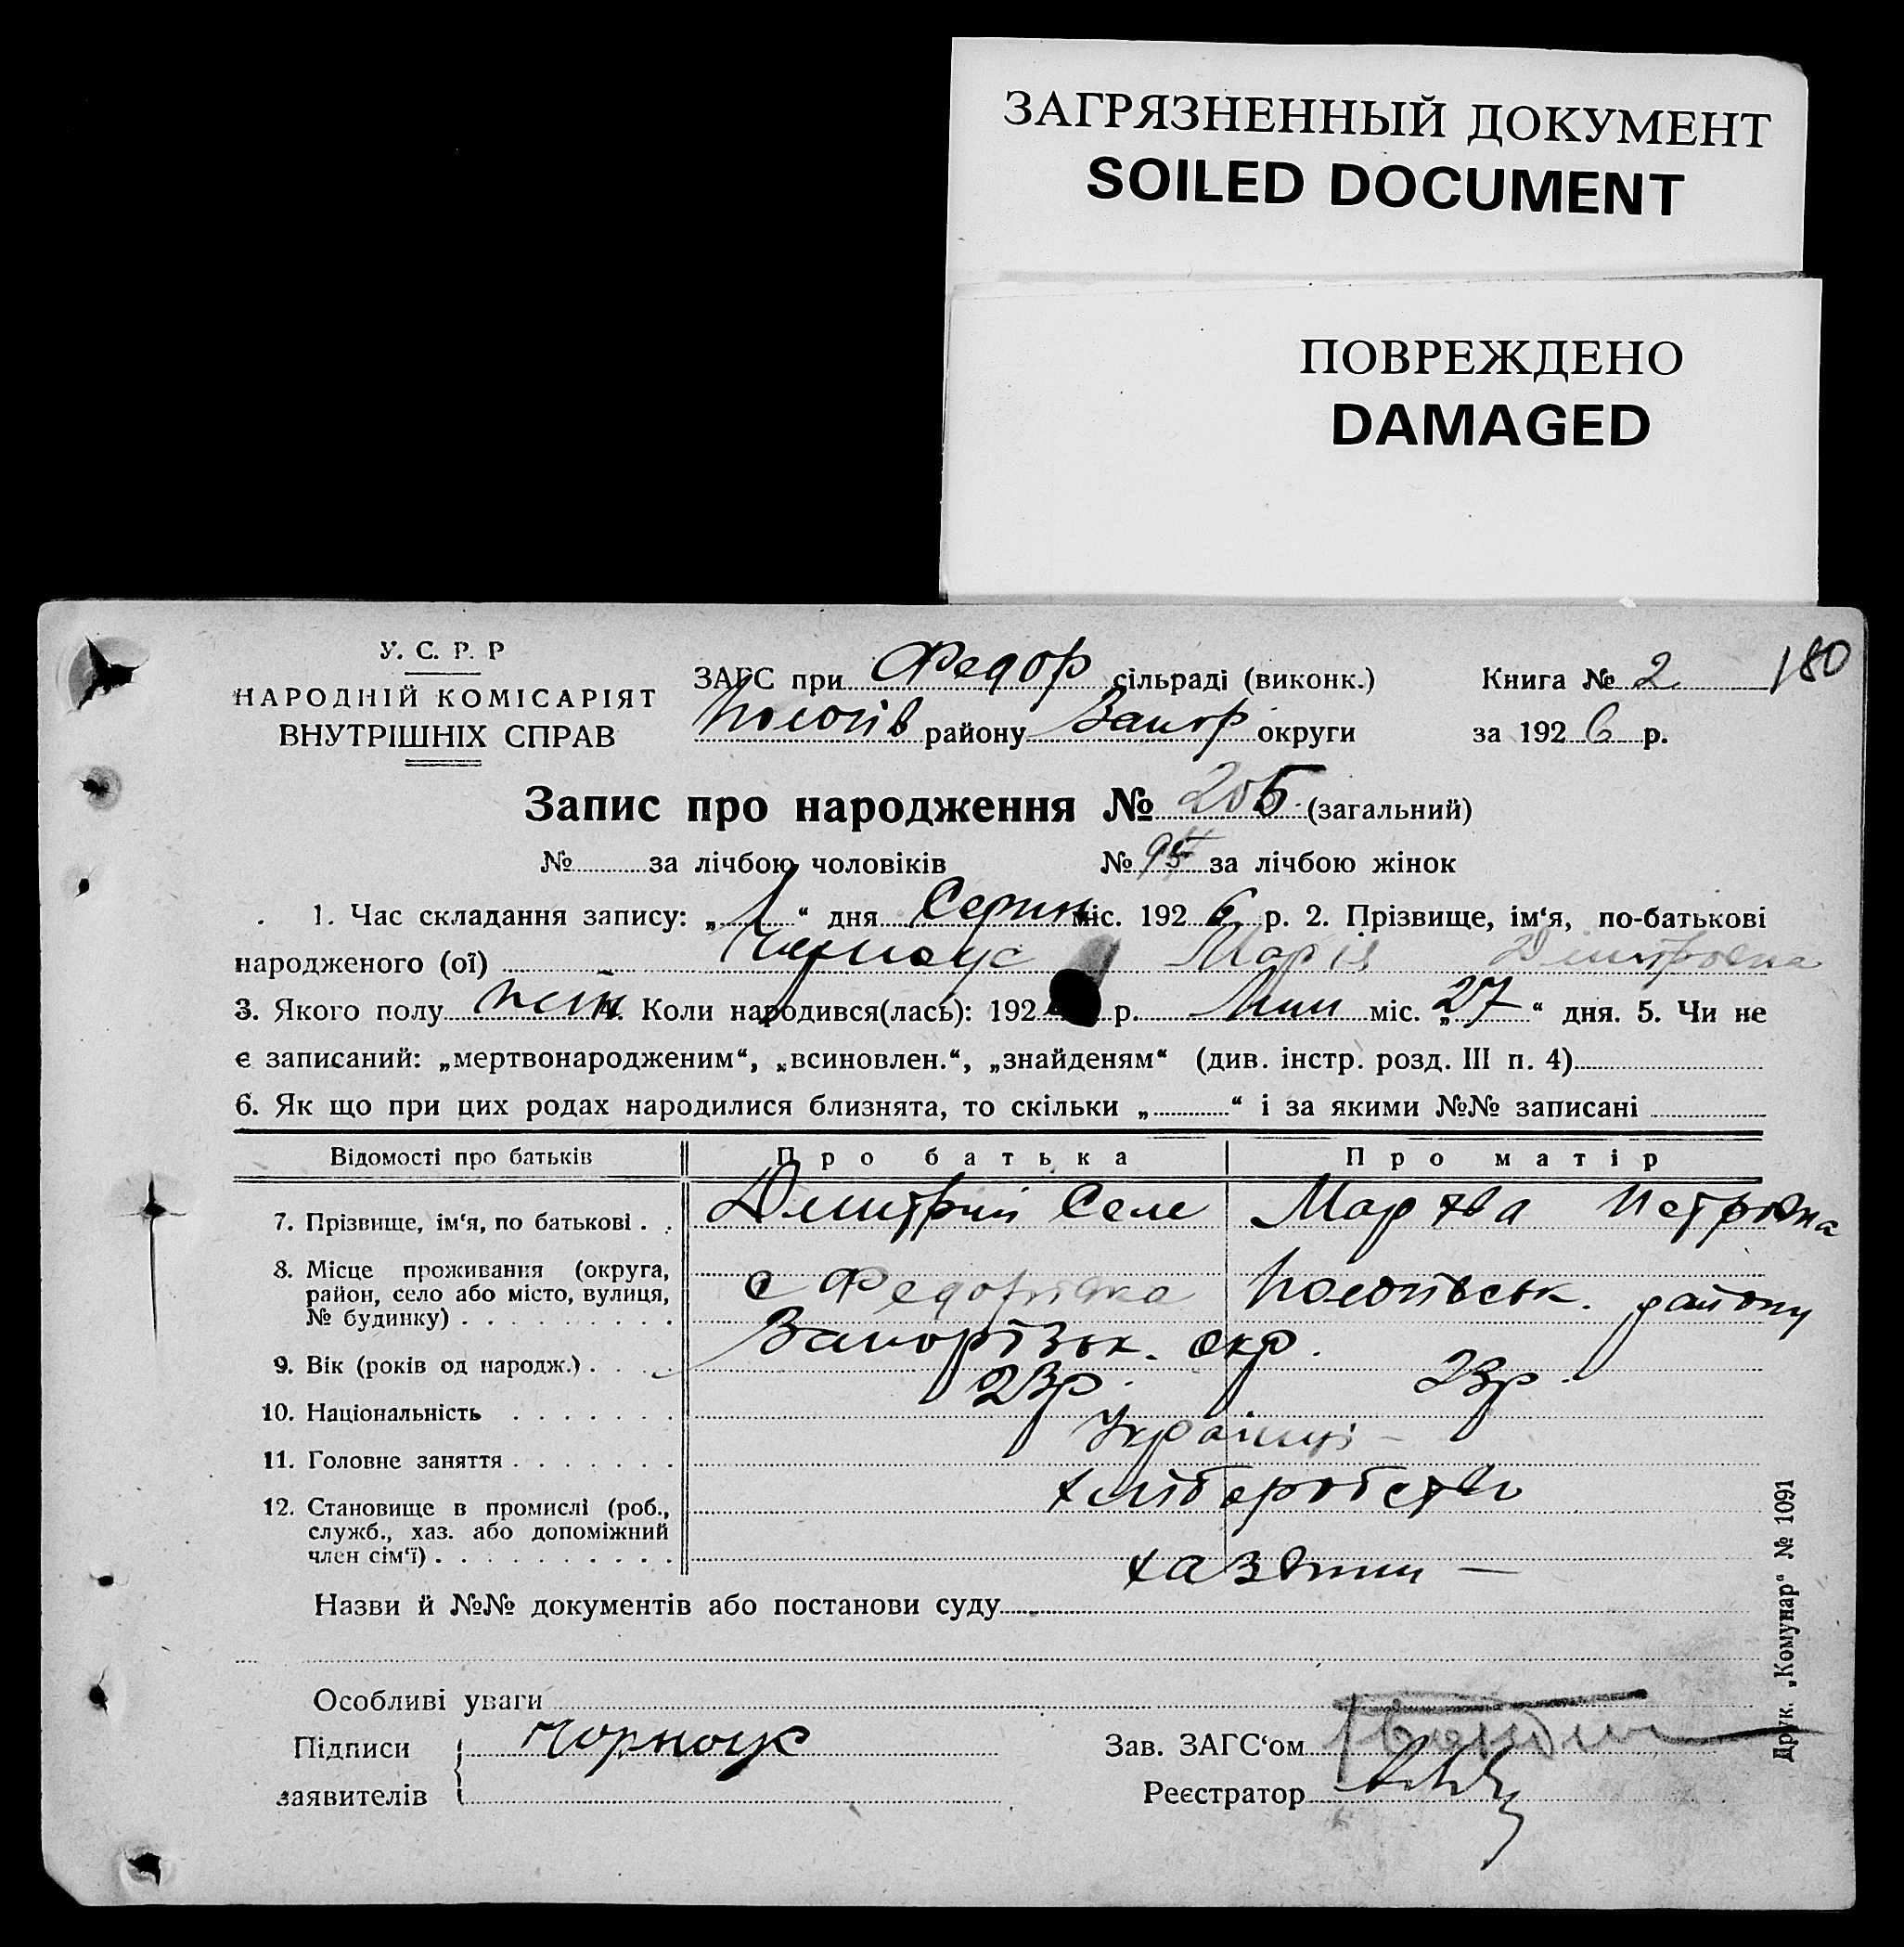 ЗАГРЯЗНЕННЫЙ ДОКУМЕНТ
SOILED DOCUMENT
ПОВРЕЖДЕНО
DAMAGED
У. С. Р. Р
НАРОДНІЙ КОМІСАРІЯТ
ВНУТРІШНІХ СПРАВ
ЗАГС при Федор сільраді (виконк.)
Пологів району Запор округи
Книга № 2 180
за 1926 р.
Запис про народження № 205 (загальний)
№ за лічбою чоловіків № 95 за лічбою жінок
1. Час складання запису: „1“ дня Серпн міс. 1926 р. 2. Прізвище, ім‘я, по-батькові
народженого (ої) Чорноус Марія Дмитровна
3. Якого полу жін 4. Коли народився(лась): 192 р. Лип міс. „27“ дня. 5. Чи не
є записаний: „мертвонародженим“, „всиновлен.“, „знайденям“ (див. інстр. розд. III п. 4)
6. Як що при цих родах народилися близнята, то скільки „ “ і за якими №№ записані
Відомості про батьків Про батька Про матір
7. Прізвище, ім‘я, по батькові . . Дмитрий Семе Марфа Петровна
8. Місце проживання (округа,
район, село або місто, вулиця,
№ будинку) . . . . . . . . . с Федорівка Пологівськ. району
Запорізьк. окр.
9. Вік (років од народж.) . . . . 23р. 23р.
10. Національність . . . . . . . Українці –
11. Головне заняття . . . . . . . хліборобство
12. Становище в промислі (роб.,
служб., хаз. або допоміжний
член сім‘ї) . . . . . . . . . . хазяїни —
Назви й №№ документів або постанови суду
Особливі уваги
Підписи Чорноус
заявителів
Зав. ЗАГС‘ом
Реєстратор
Друк. „Комунар“ № 1091